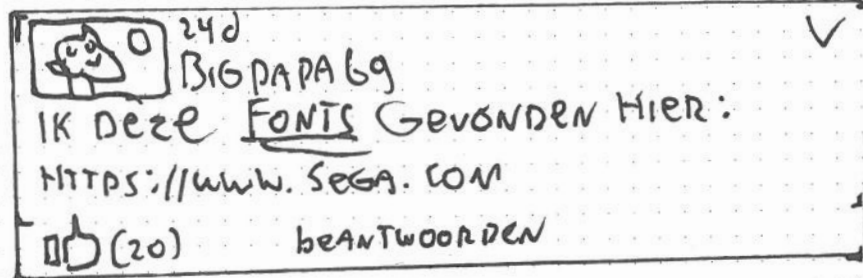 24d
BIGPAPA69
IK DEZE FONTS GEVONDEN HIER:
HTTPS://WWW.SEGA.COM
(20) BEANTWOORDEN